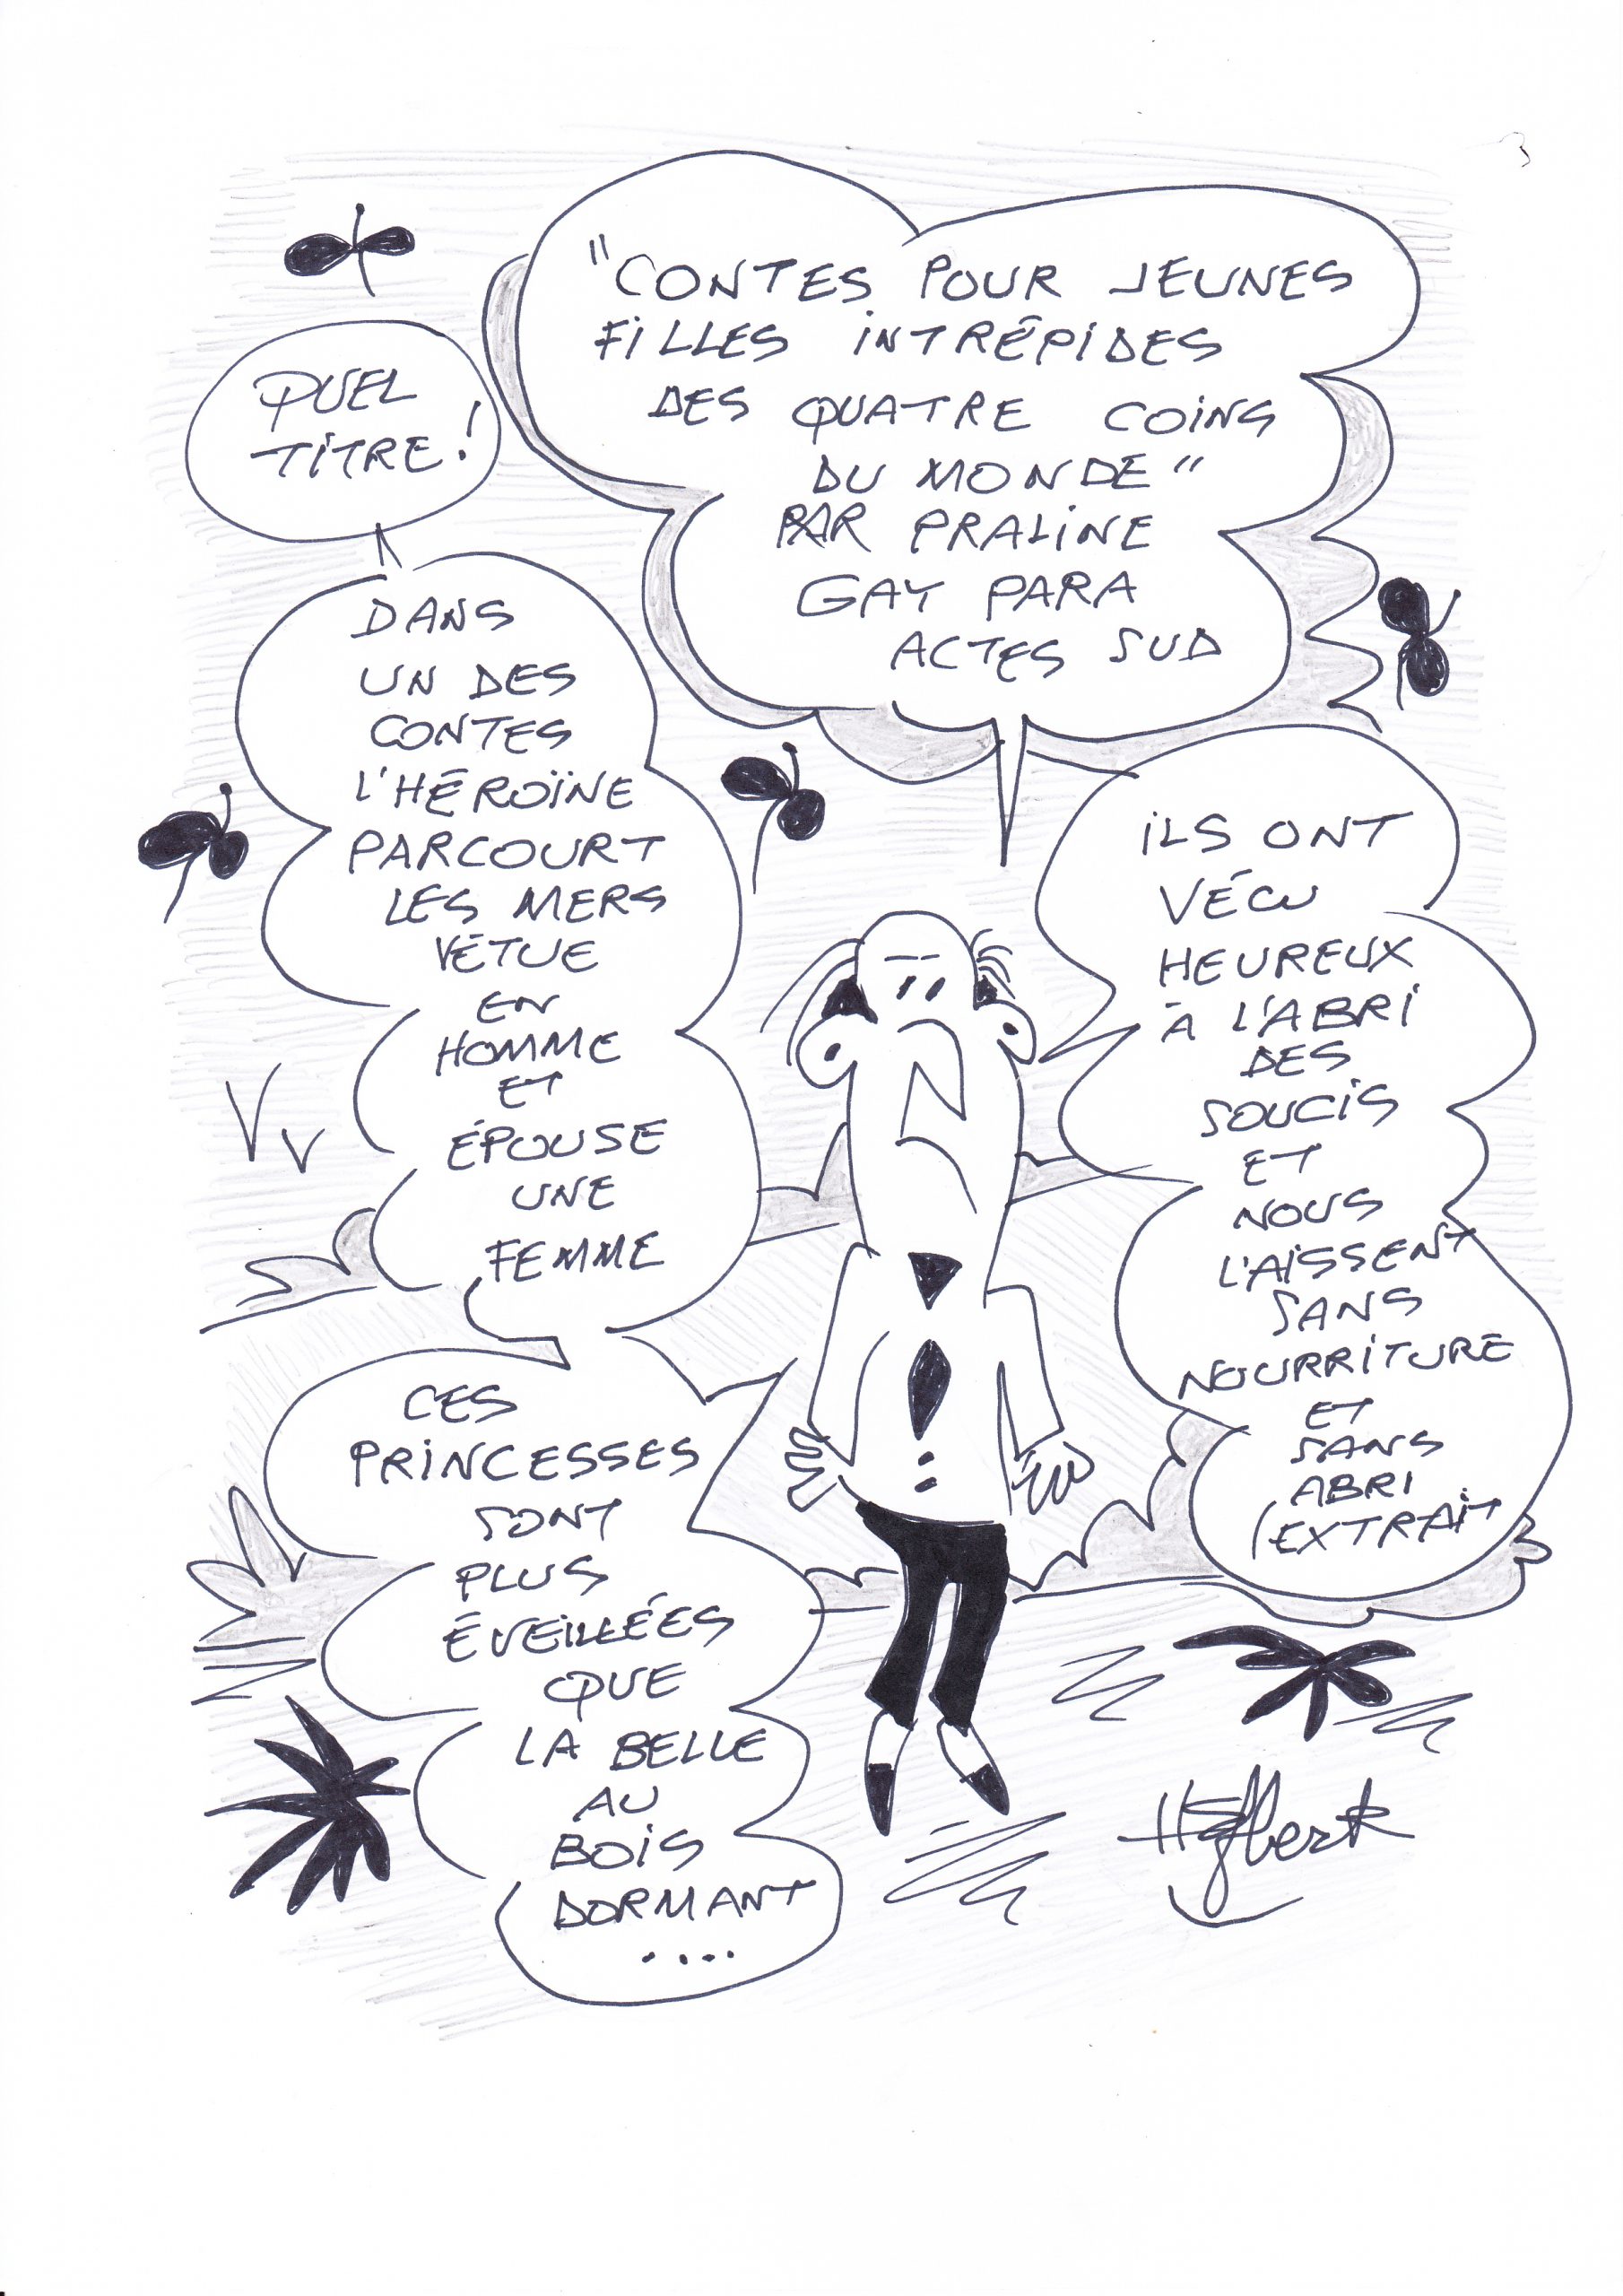 "CONTES POUR JEUNES
FILLES INTRÉPIDES
DES QUATRE COINS
DU MONDE"
PAR PRALINE
GAY PARA
ACTES SUD
QUEL
TITRE!
DANS
UN DES
CONTES
L'HÉROÏNE
PARCOURT
LES MERS
VÊTUE
EN
HOMME
ET
ÉPOUSE
UNE
FEMME
CES
PRINCESSES
SONT
PLUS
ÉVEILLÉES
QUE
LA BELLE
AU
BOIS
DORMANT
....
ILS ONT
VÉCU
HEUREUX
À L'ABRI
DES
SOUCIS
ET
NOUS
L'AISSENT
SANS
NOURRITURE
ET
SANS
ABRI
(EXTRAIT